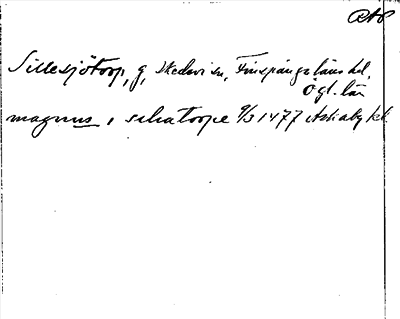 RAP
Sillesjötorp, g, Skedevi sn, Finspångs läns hd,
Ögl. län
magnus i silatorpe 9/3 1477 Askaby kl